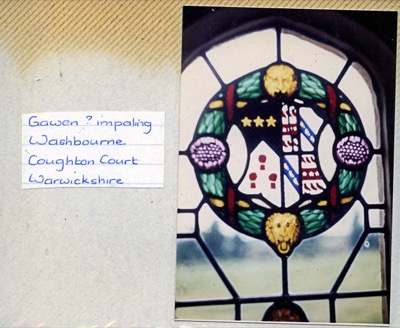 Gawen ? impaling
Washbourne
Coughton Court
Warwickshire